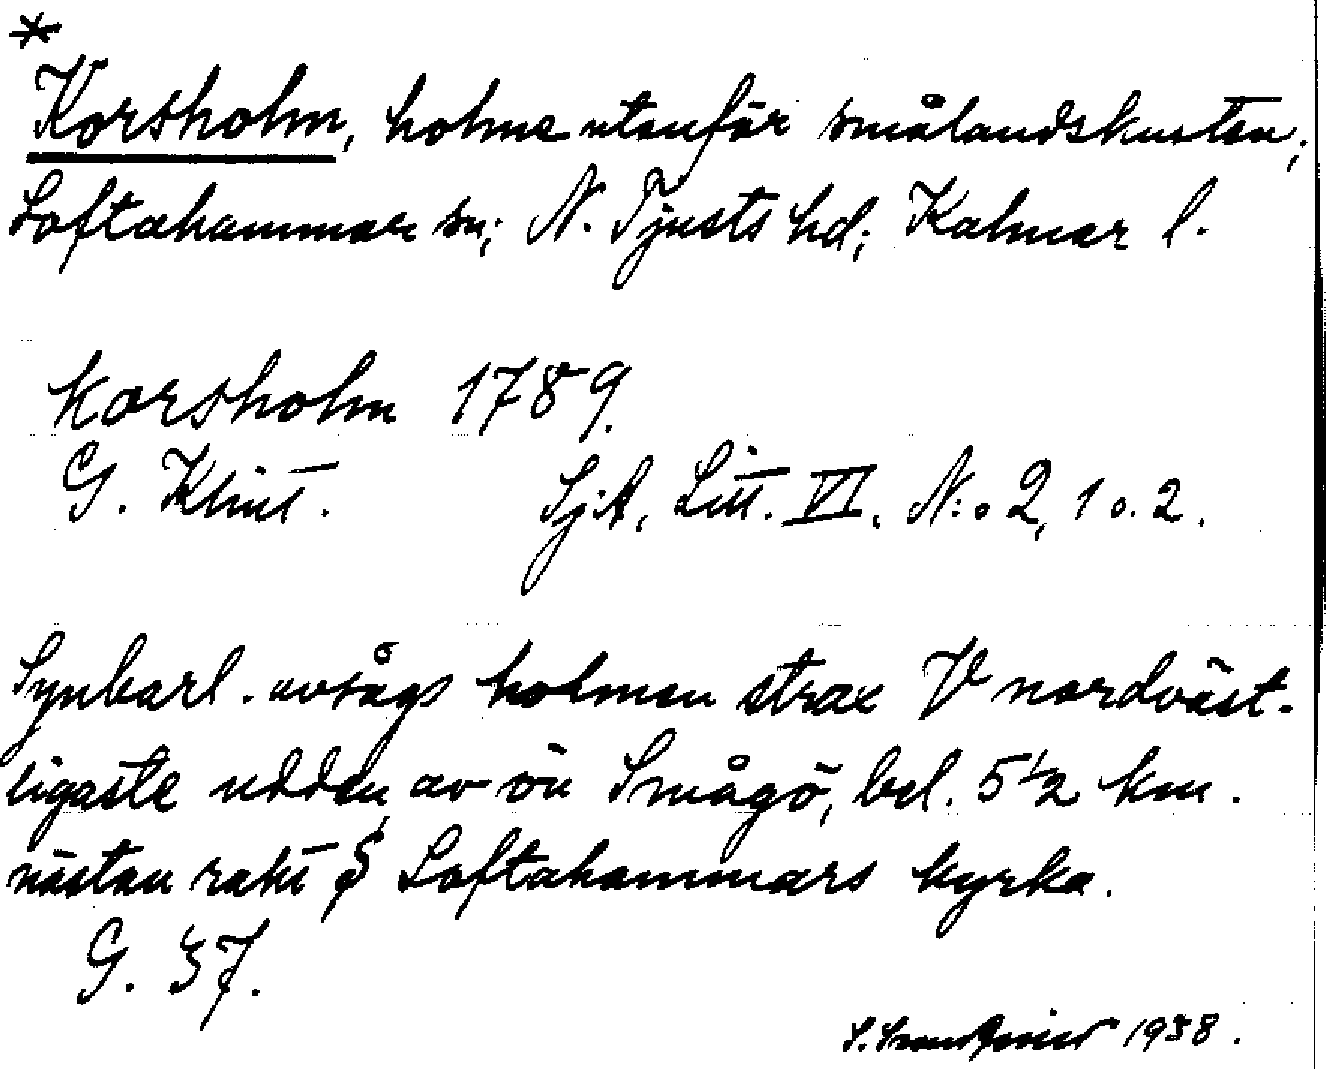 *
Korsholm, holme utanför smålandskusten;
Loftahammar sn; N. Tjusts hd; Kalmar l.
Korsholm 1789.
G. Klint. Sj.A, Litt. VI. N:o 2, 1 o. 2.
Synbarl. avsågs holmen strax V nordväst-
ligaste udden av ön Smågö, bel. 5 1/2 km.
nästan rakt S Loftahammars kyrka.
G. 37.
1938.